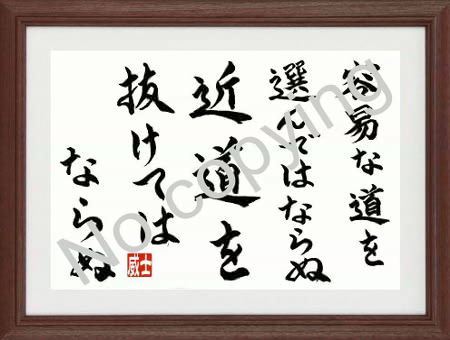 容易な道を
選んではならぬ
近道を
抜けては
ならぬ
威士
No copying